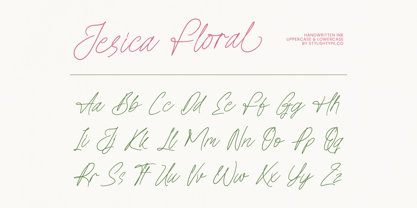 Jesica Floral
HANDWRITTEN INK
UPPERCASE & LOWERCASE
BY STYLISHTYPE.CO
Aa Bb Cc Dd Ee Ff Gg Hh
Ii Jj Kk Ll Mm Nn Oo Pp Qq
Rr Ss Tt Uu Vv Ww Xx Yy Zz